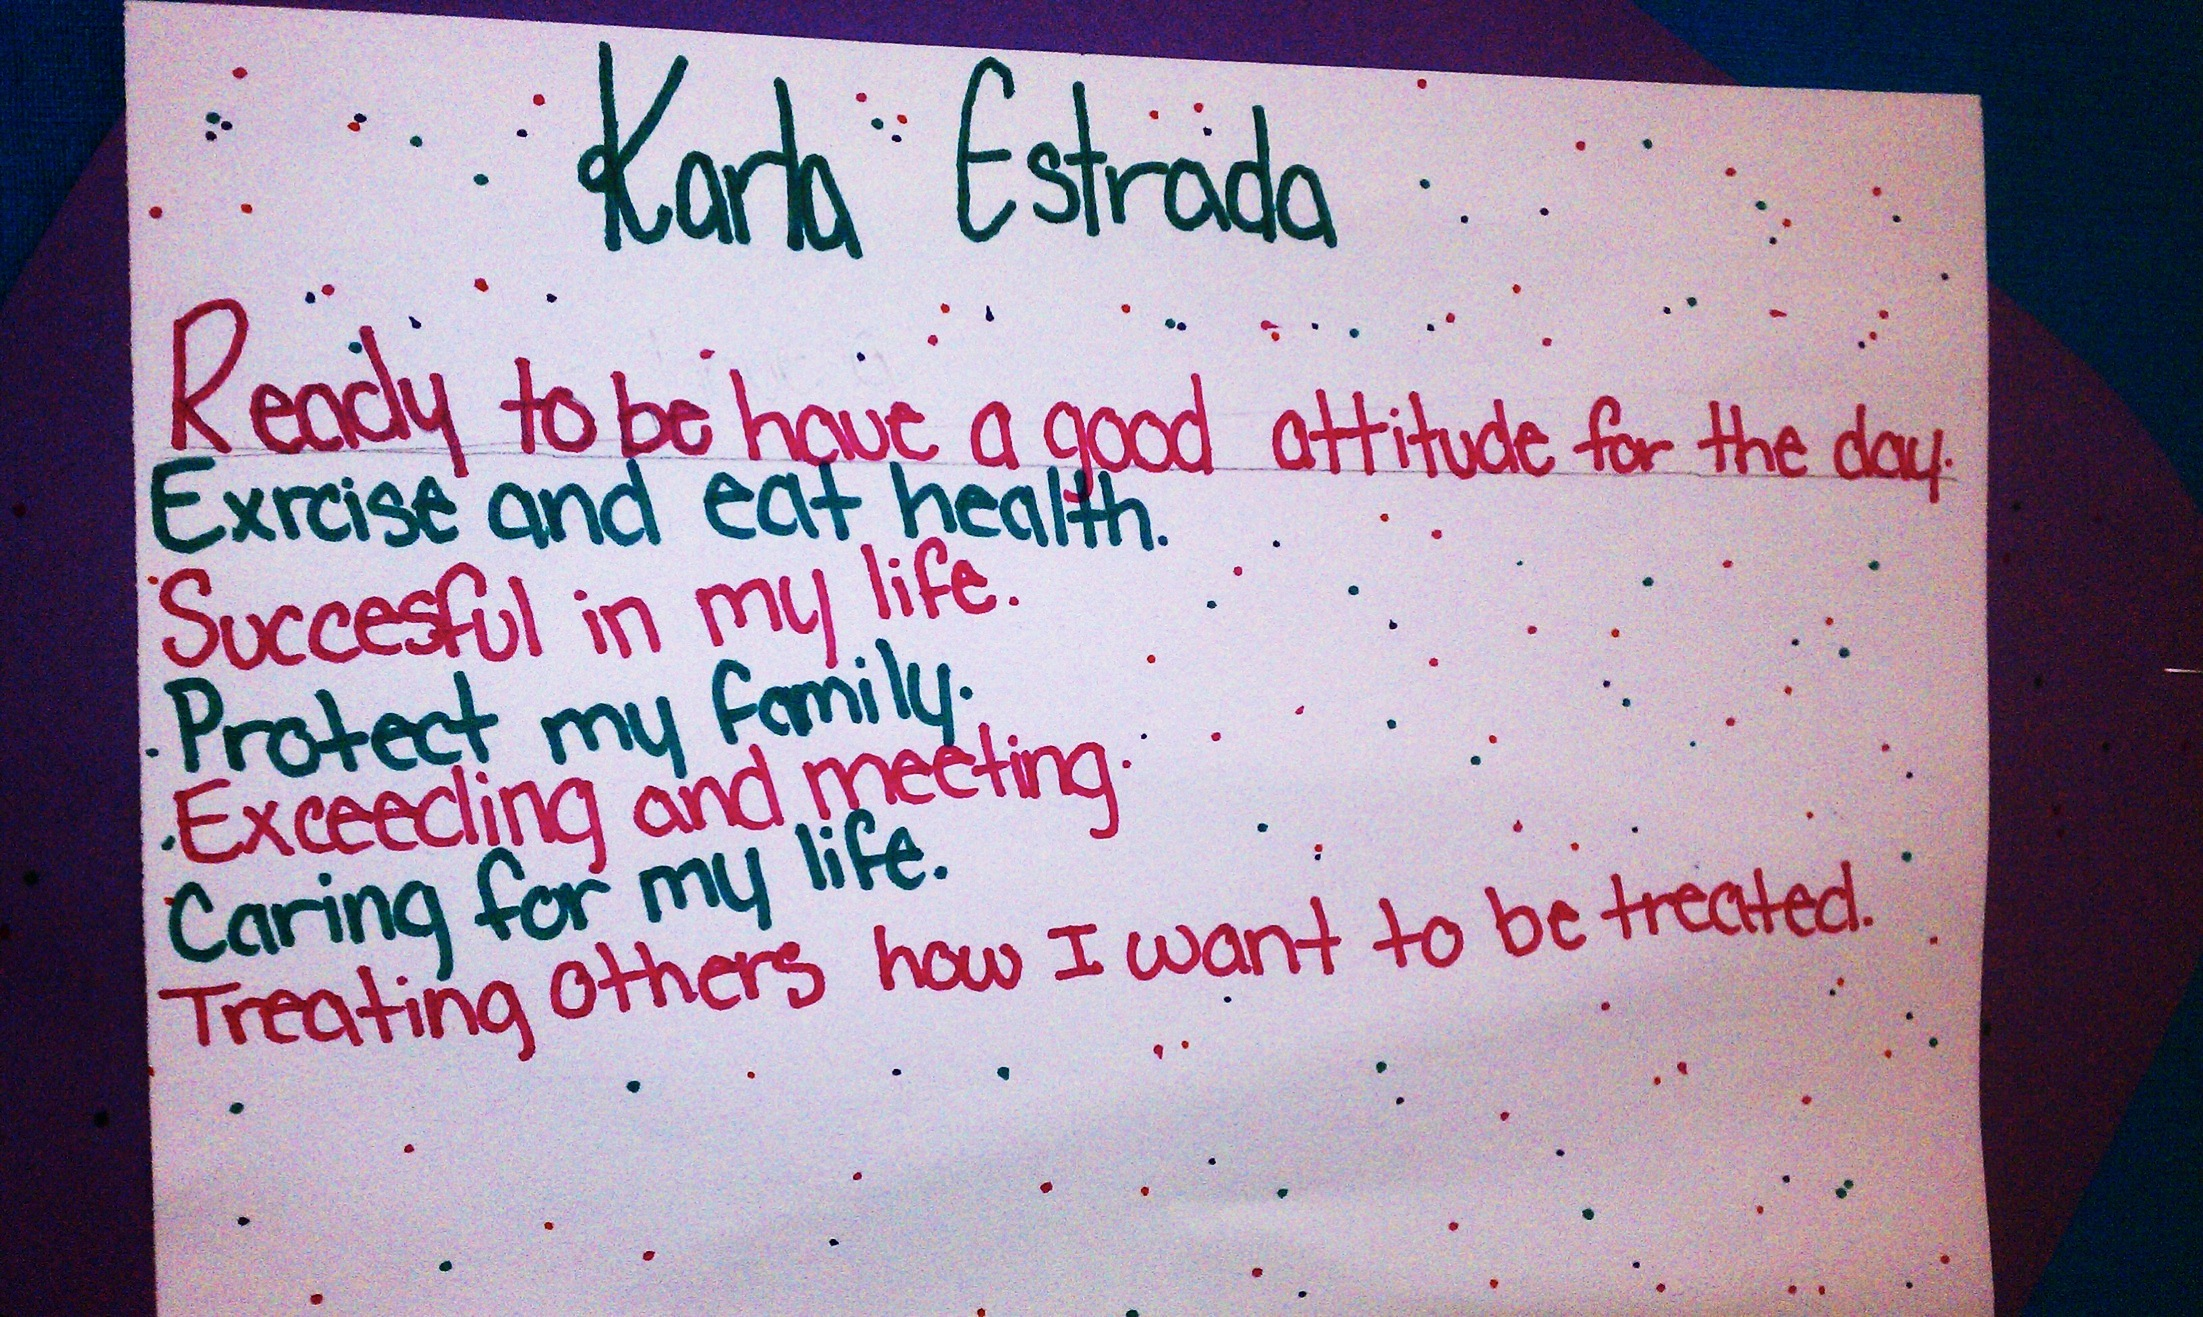 Karla Estrada
Ready to be have a good attitude for the day.
Exrcise and eat health.
Succesful in my life.
Protect my family.
Exceeding and meeting.
Caring for my life.
Treating others how I want to be treated.